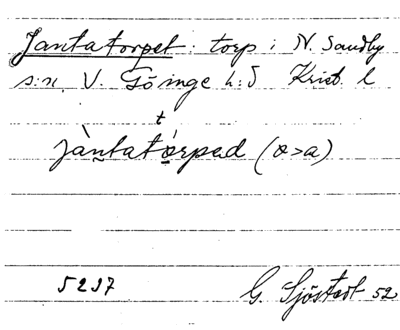 Jantatorpet: torp i N. Sandby
s:n. V. Göinge h:d Krist. l
t
jàntatórpad (ɵ>a)
5237
G. Sjöstedt 52